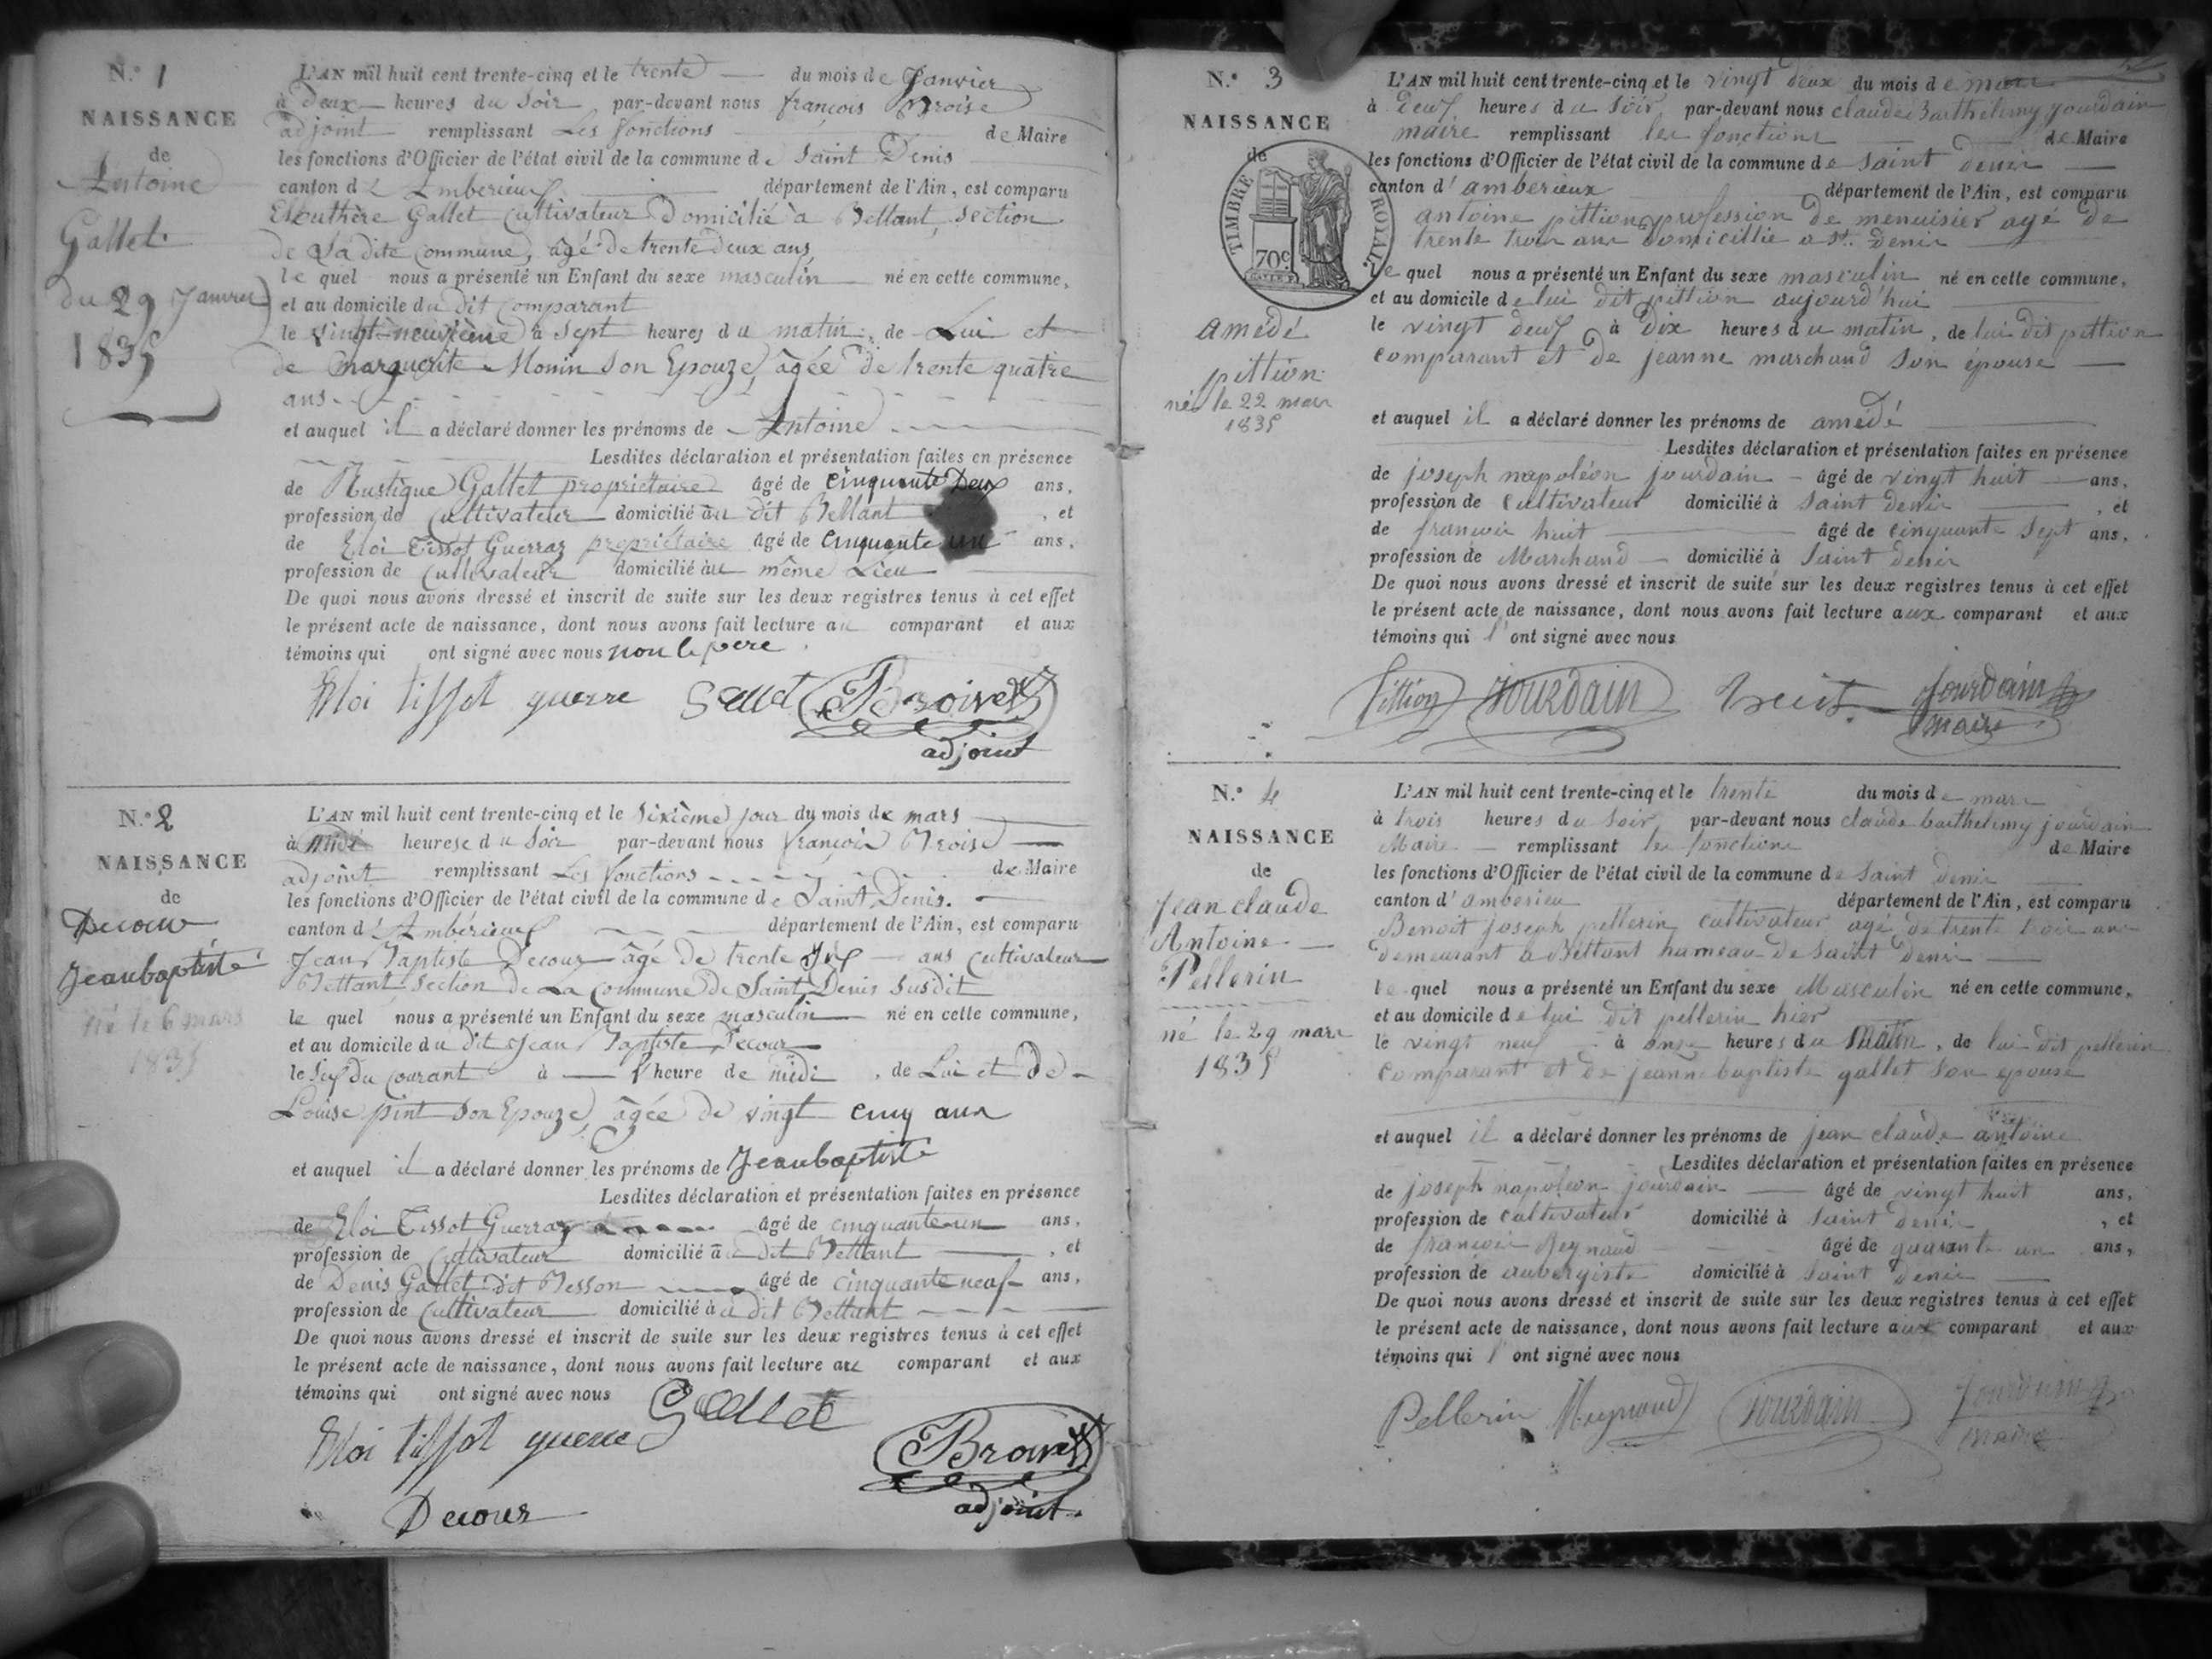 N.º 1
NAISSANCE
de
Antoine
Gallet
du 29 Janvier
1835
L'AN mil huit cent trente-cinq et le trente du mois de Janvier
à Deux heures du Soir par-devant nous françois Broise
adjoint remplissant Les fonctions de Maire
les fonctions d'Officier de l'état civil de la commune de Saint Denis
canton d'Amberieux département de l'Ain, est comparu
Elouthère Gallet Cultivateur Domicilié à Bettant, Section
de La dite Commune, âgé de trente deux ans,
le quel nous a présenté un Enfant du sexe masculin né en cette commune,
et au domicile du dit Comparant
le vingt-neuvième à Sept heures du matin, de Lui et
de marguerite Monin Son Epouze, âgée de trente quatre
ans
et auquel il a déclaré donner les prénoms de Antoine
Lesdites déclaration et présentation faites en présence
de Rustique Gallet propriétaire âgé de Cinquante Deux ans,
profession de Cultivateur domicilié au dit Bettant, et
de Eloi Tissot Guerraz propriétaire âgé de Cinquante un ans,
profession de Cultivateur domicilié au même Lieu
De quoi nous avons dressé et inscrit de suite sur les deux registres tenus à cet effet
le présent acte de naissance, dont nous avons fait lecture au comparant et aux
témoins qui ont signé avec nous non le père.
Eloi tissot guerre Gallet Broise
adjoint
N.º 2
NAISSANCE
de
Decour
Jeanbaptiste
né le 6 mars
1835
L'AN mil huit cent trente-cinq et le Sixième jour du mois de mars
à heures du Soir par-devant nous françois Broise
adjoint remplissant Les fonctions de Maire
les fonctions d'Officier de l'état civil de la commune de Saint Denis.
canton d'Ambérieux département de l'Ain, est comparu
Jean Baptiste Decour âgé de trente ans Cultivateur
Bettant, Section de La Commune de Saint Denis Susdit
le quel nous a présenté un Enfant du sexe masculin né en cette commune,
et au domicile du dit Jean Baptiste Decour
le Six du Courant à l'heure de midi, de Lui et De
Louise pint Son Epouze, âgée de vingt cinq ans
et auquel il a déclaré donner les prénoms de Jeanbaptiste
Lesdites déclaration et présentation faites en présence
de Eloi Tissot Guerraz âgé de cinquante-un ans,
profession de Cultivateur domicilié a dit Bettant, et
de Denis Gallet dit Besson âgé de cinquante neuf ans,
profession de Cultivateur domicilié à a dit Bettant
De quoi nous avons dressé et inscrit de suite sur les deux registres tenus à cet effet
le présent acte de naissance, dont nous avons fait lecture au comparant et aux
témoins qui ont signé avec nous
Gallet
Eloi tissot guerre
Broise
adjoint
Decour
N.º 3
NAISSANCE
de
TIMBRE ROYAL
70c
amédé
pittion
née le 22 mars
1835
L'AN mil huit cent trente-cinq et le vingt deux du mois de mars
à deux heures du Soir par-devant nous claude Barthelemy jourdain
maire remplissant les fonctions de Maire
les fonctions d'Officier de l'état civil de la commune de Saint denis
canton d'amberieux département de l'Ain, est comparu
antoine pittion profession de menuisier agé de
trente trois ans domicillié a st. denis
le quel nous a présenté un Enfant du sexe masculin né en cette commune,
et au domicile de lui dit pittion aujourd'hui
le vingt deux à dix heures du matin, de lui dit pittion
comparant et de jeanne marchand son épouse
et auquel il a déclaré donner les prénoms de amédé
Lesdites déclaration et présentation faites en présence
de joseph napoléon jourdain âgé de vingt huit ans,
profession de Cultivateur domicilié à Saint denis, et
de françois huit âgé de cinquante sept ans,
profession de Marchand domicilié à Saint denis
De quoi nous avons dressé et inscrit de suite sur les deux registres tenus à cet effet
le présent acte de naissance, dont nous avons fait lecture aux comparant et aux
témoins qui l'ont signé avec nous
Pittion Jourdain huit Jourdain
maire
N.º 4
NAISSANCE
de
Jean claude
Antoine
Pellerin
né le 29 mars
1835
L'AN mil huit cent trente-cinq et le trente du mois de mars
à trois heures du Soir par-devant nous claude barthelemy jourdain
Maire remplissant les fonctions de Maire
les fonctions d'Officier de l'état civil de la commune de Saint denis
canton d'amberieu département de l'Ain, est comparu
Benoit joseph pellerin cultivateur agé de trente trois ans
demeurant a Bettant hameau de saint denis
le quel nous a présenté un Enfant du sexe Masculin né en cette commune,
et au domicile de lui dit pellerin hier
le vingt neuf à onze heures du Matin, de lui dit pellerin
comparant et de jeanne baptiste gallet son epouse
et auquel il a déclaré donner les prénoms de jean claude antoine
Lesdites déclaration et présentation faites en présence
de joseph napoleon jourdain âgé de vingt huit ans,
profession de cultivateur domicilié à Saint denis, et
de françois Reynaud âgé de quarante un ans,
profession de aubergiste domicilié à Saint denis
De quoi nous avons dressé et inscrit de suite sur les deux registres tenus à cet effet
le présent acte de naissance, dont nous avons fait lecture aux comparant et aux
témoins qui l'ont signé avec nous
Pellerin Reynaud Jourdain Jourdain
maire